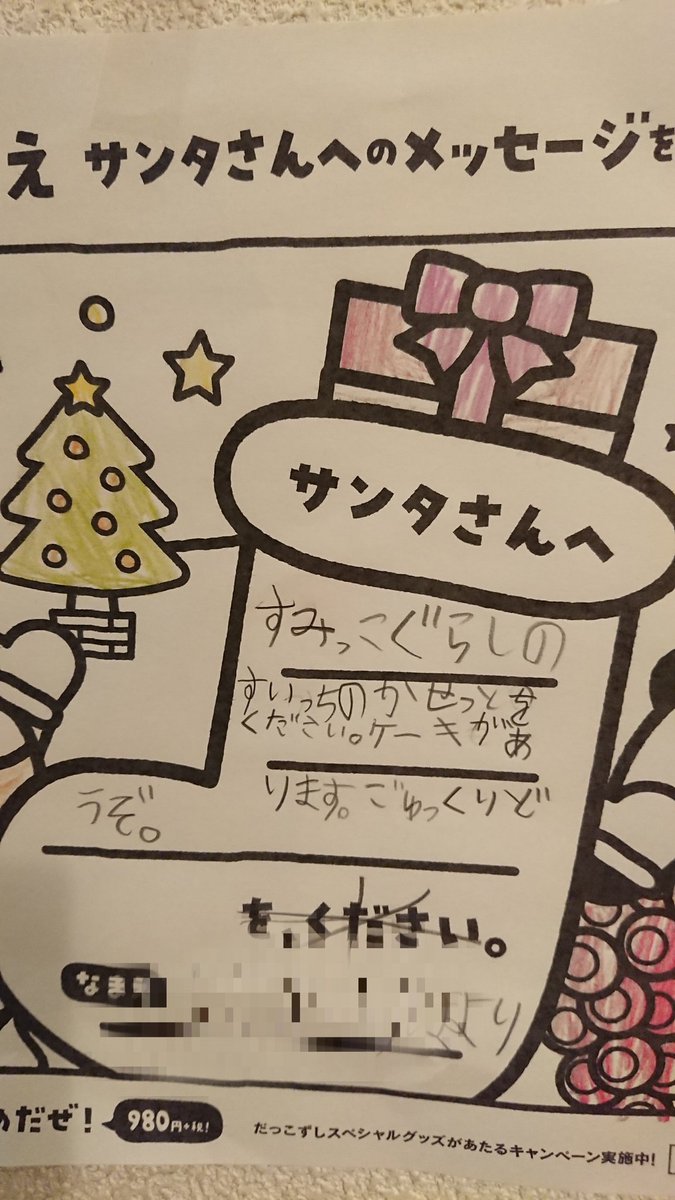 え サンタさんへのメッセージを
サンタさんへ
すみっこぐらしの
すいっちのかせっとを
ください。ケーキがあ
ります。ごゆっくりど
うぞ。
を、ください。
なま
より
めだぜ!
980円+税!
だっこずしスペシャルグッズがあたるキャンペーン実施中!